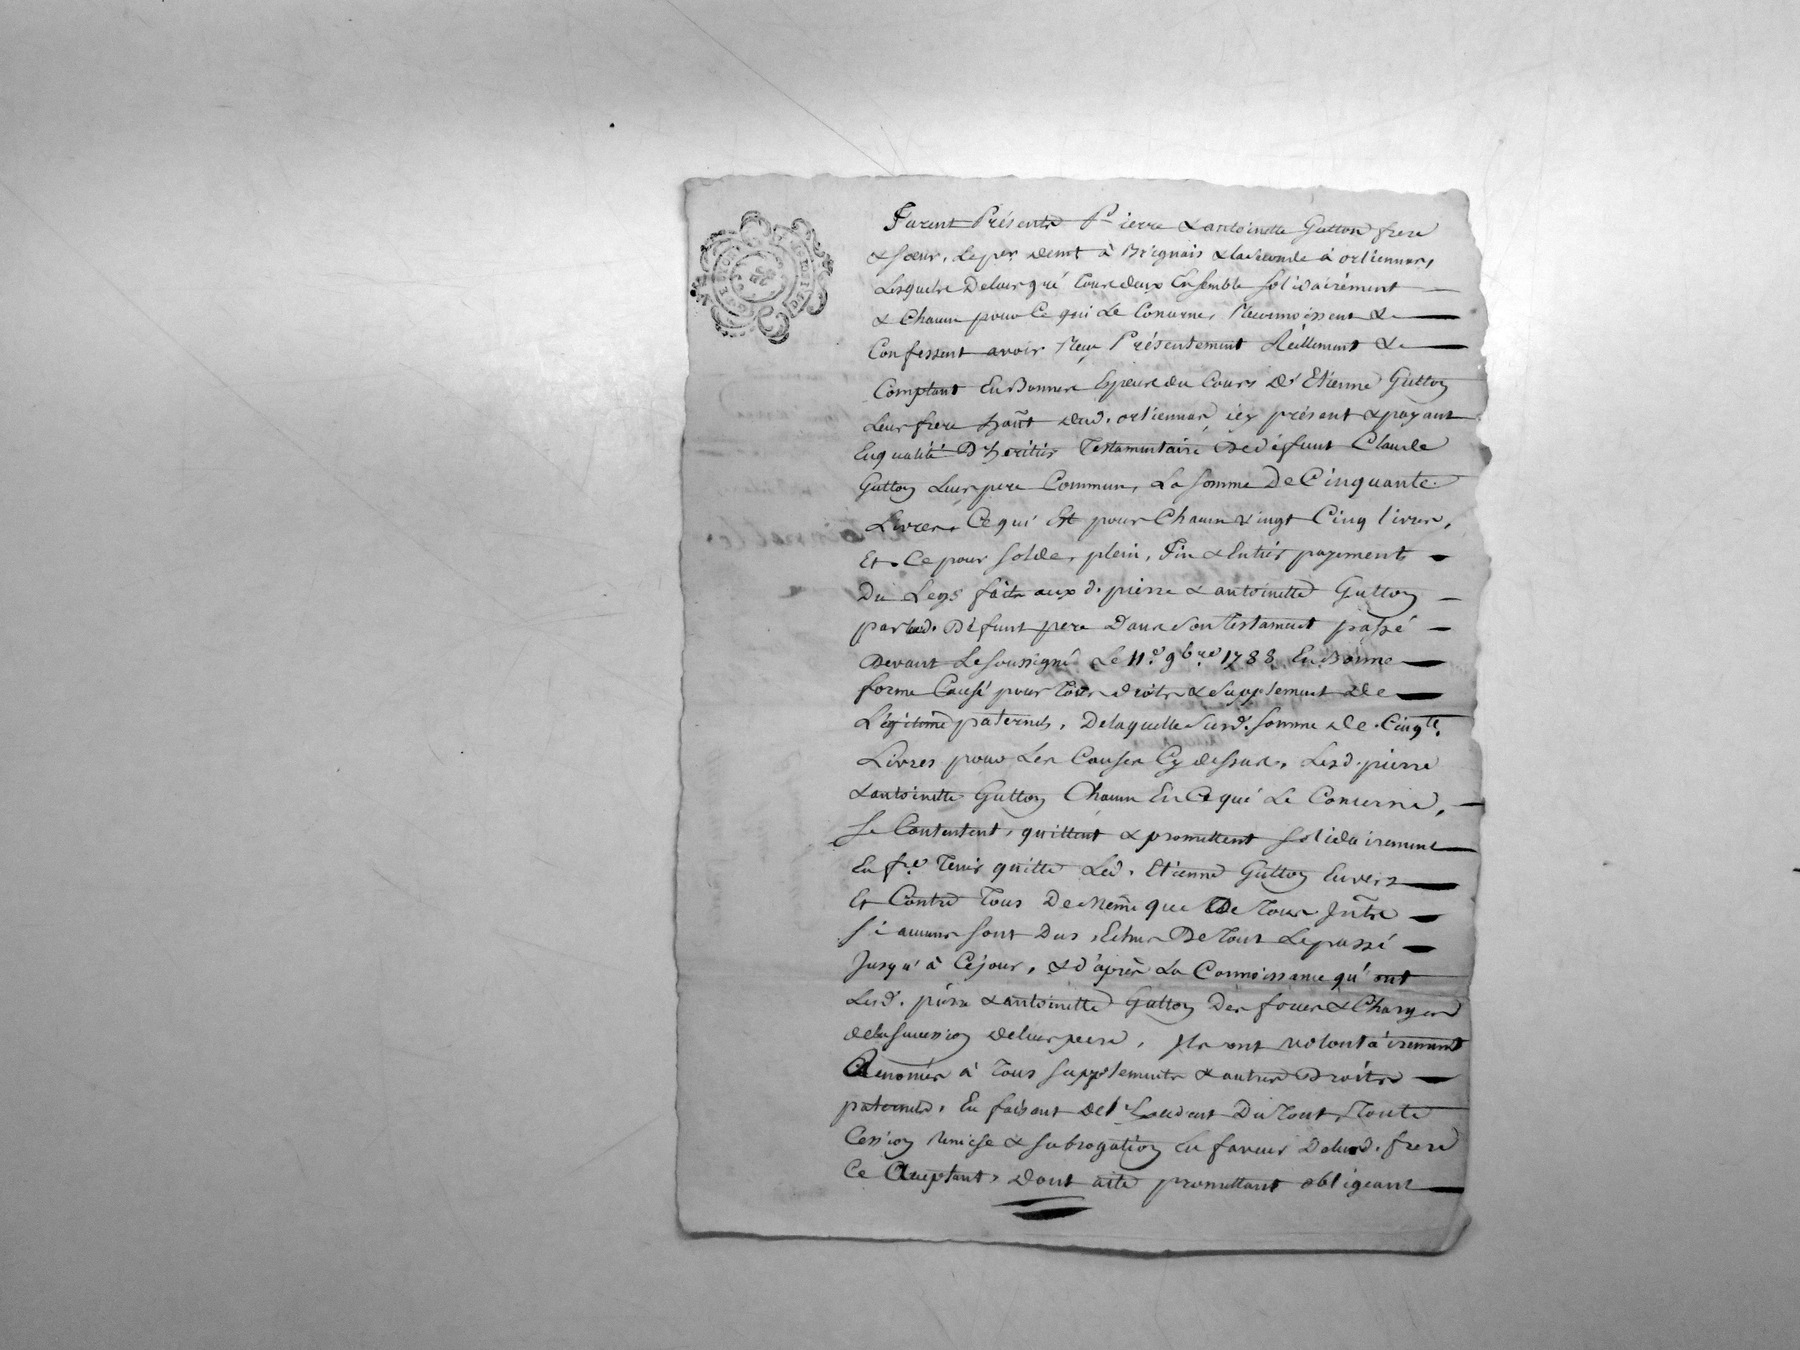 Furent Présents Pierre & antoinette Gutton frere
& sœur, le per demt à Brignais & la seconde à orliennas,
Lesquels de leur gré tous deux Ensemble solidairement
& Chacun pour Ce qui Le Concerne, Reconnoissent &
Confessent avoir Reçu Présentement Réellement &
Comptant En Bonnes Especes du Cours d'Etienne Gutton
Leur frere hañt dud. orliennas icy présent & payant
En qualité D'héritier Testamentaire De défunt Claude
Gutton Leur pere Commun, La somme De Cinquante
Livres, Ce qui Est pour Chacun vingt Cinq livres,
Et Ce pour solde, plein, Fin & Entier payement
Du Legs fait aux d. pierre & antoinette Gutton
par leurd. Défunt pere dans son Testament passé
Devant Le soussigné Le 11e 9bre 1788 En Bonne
forme Causé pour Tous droits & supplement de
Légitime paternels, De laquelle susd. somme de Cinqte
Livres pour Les Causes Cy dessus, Lesd. pierre
& antoinette Gutton Chacun En Ce qui Le Concerne,
se Contentent, quittent & promettent solidairement
En fre Tenir quitte Led. Etienne Gutton Envers
Et Contre Tous De Même que De Tous Jntr̃e
si aucuns sont Dus, Echus De Tout Le passé
Jusqu'à Ce jour, & d'après La Connoissance qu'ont
Lesd. pierre & antoinette Gutton Des forces & Charges
de la succession de leur pere, Jls ont volontairement
Renoncés à Tous supplements & autres Droits
paternels, En faisant de l'Excedent Du Tout Toute
Cession Remise & subrogation En faveur De leurd. frere
Ce Acceptant, Dont acte promettant obligeant